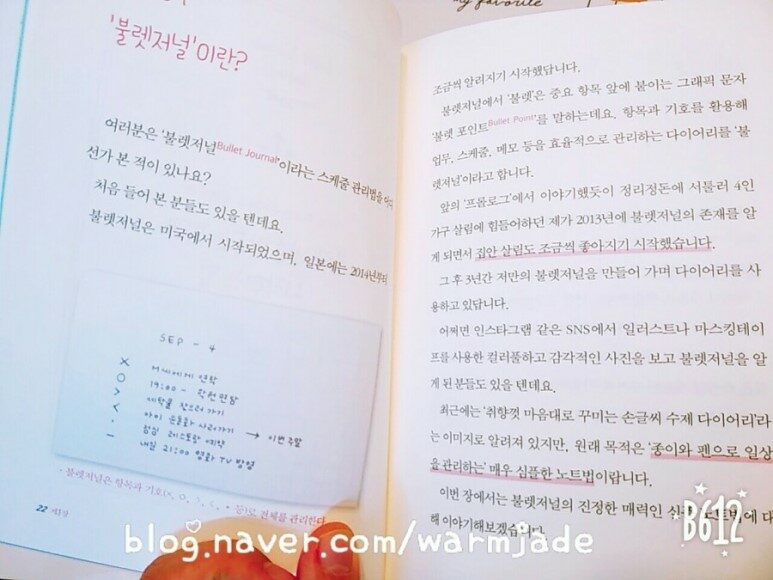 '불렛저널'이란?
여러분은 '불렛저널Bullet Journal'이라는 스케줄 관리법을
선가 본 적이 있나요?
처음 들어 본 분들도 있을 텐데요.
불렛저널은 미국에서 시작되었으며, 일본에는 2014년부터
SEP - 4
× 에게 연락
○ 19:00 -
> 세탁물 찾으러 가기
< 아이 운동화 사러가기 → 이번 주말
· 점심 레스토랑 예약
- 내일 21:00 영화 TV 방영
· 불렛저널은 항목과 기호(×, ○, >, <, · 등)로 전체를 관리한다.
22 제1장
favorite
조금씩 알려지기 시작했답니다.
불렛저널에서 '불렛'은 중요 항목 앞에 붙이는 그래픽 문자
'불렛 포인트Bullet Point'를 말하는데요. 항목과 기호를 활용해
업무, 스케줄, 메모 등을 효율적으로 관리하는 다이어리를 '불
렛저널'이라고 합니다.
앞의 '프롤로그'에서 이야기했듯이 정리정돈에 서툴러 4인
가구 살림에 힘들어하던 제가 2013년에 불렛저널의 존재를 알
게 되면서 집안 살림도 조금씩 좋아지기 시작했습니다.
그 후 3년간 저만의 불렛저널을 만들어 가며 다이어리를 사
용하고 있답니다.
어쩌면 인스타그램 같은 SNS에서 일러스트나 마스킹테이
프를 사용한 컬러풀하고 감각적인 사진을 보고 불렛저널을 알
게 된 분들도 있을 텐데요.
최근에는 '취향껏 마음대로 꾸미는 손글씨 수제 다이어리'라
는 이미지로 알려져 있지만, 원래 목적은 '종이와 펜으로 일상
을 관리하는' 매우 심플한 노트법이랍니다.
이번 장에서는 불렛저널의 진정한 매력인 심플 노트법에 대
해 이야기해보겠습니다.
B612
blog.naver.com/warmjade